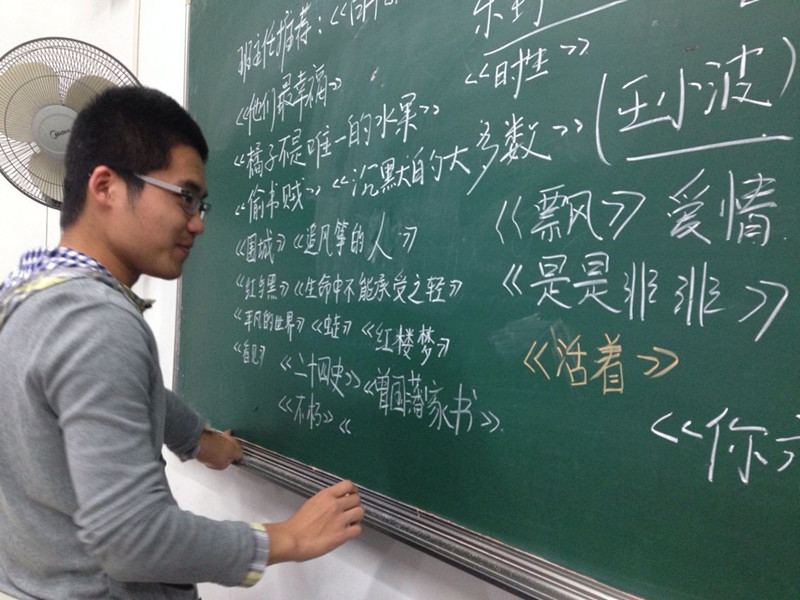 班主任推荐：《
《时生》
《他们最幸福》
《橘子不是唯一的水果》
《偷书贼》《沉默的大多数》（王小波）
《围城》《追风筝的人》
《红与黑》《生命中不能承受之轻》
《平凡的世界》《蛙》《红楼梦》
《看见》
《二十四史》《曾国藩家书》
《不朽》《
《飘》爱情
《是是非非》
《活着》
《你
Midea